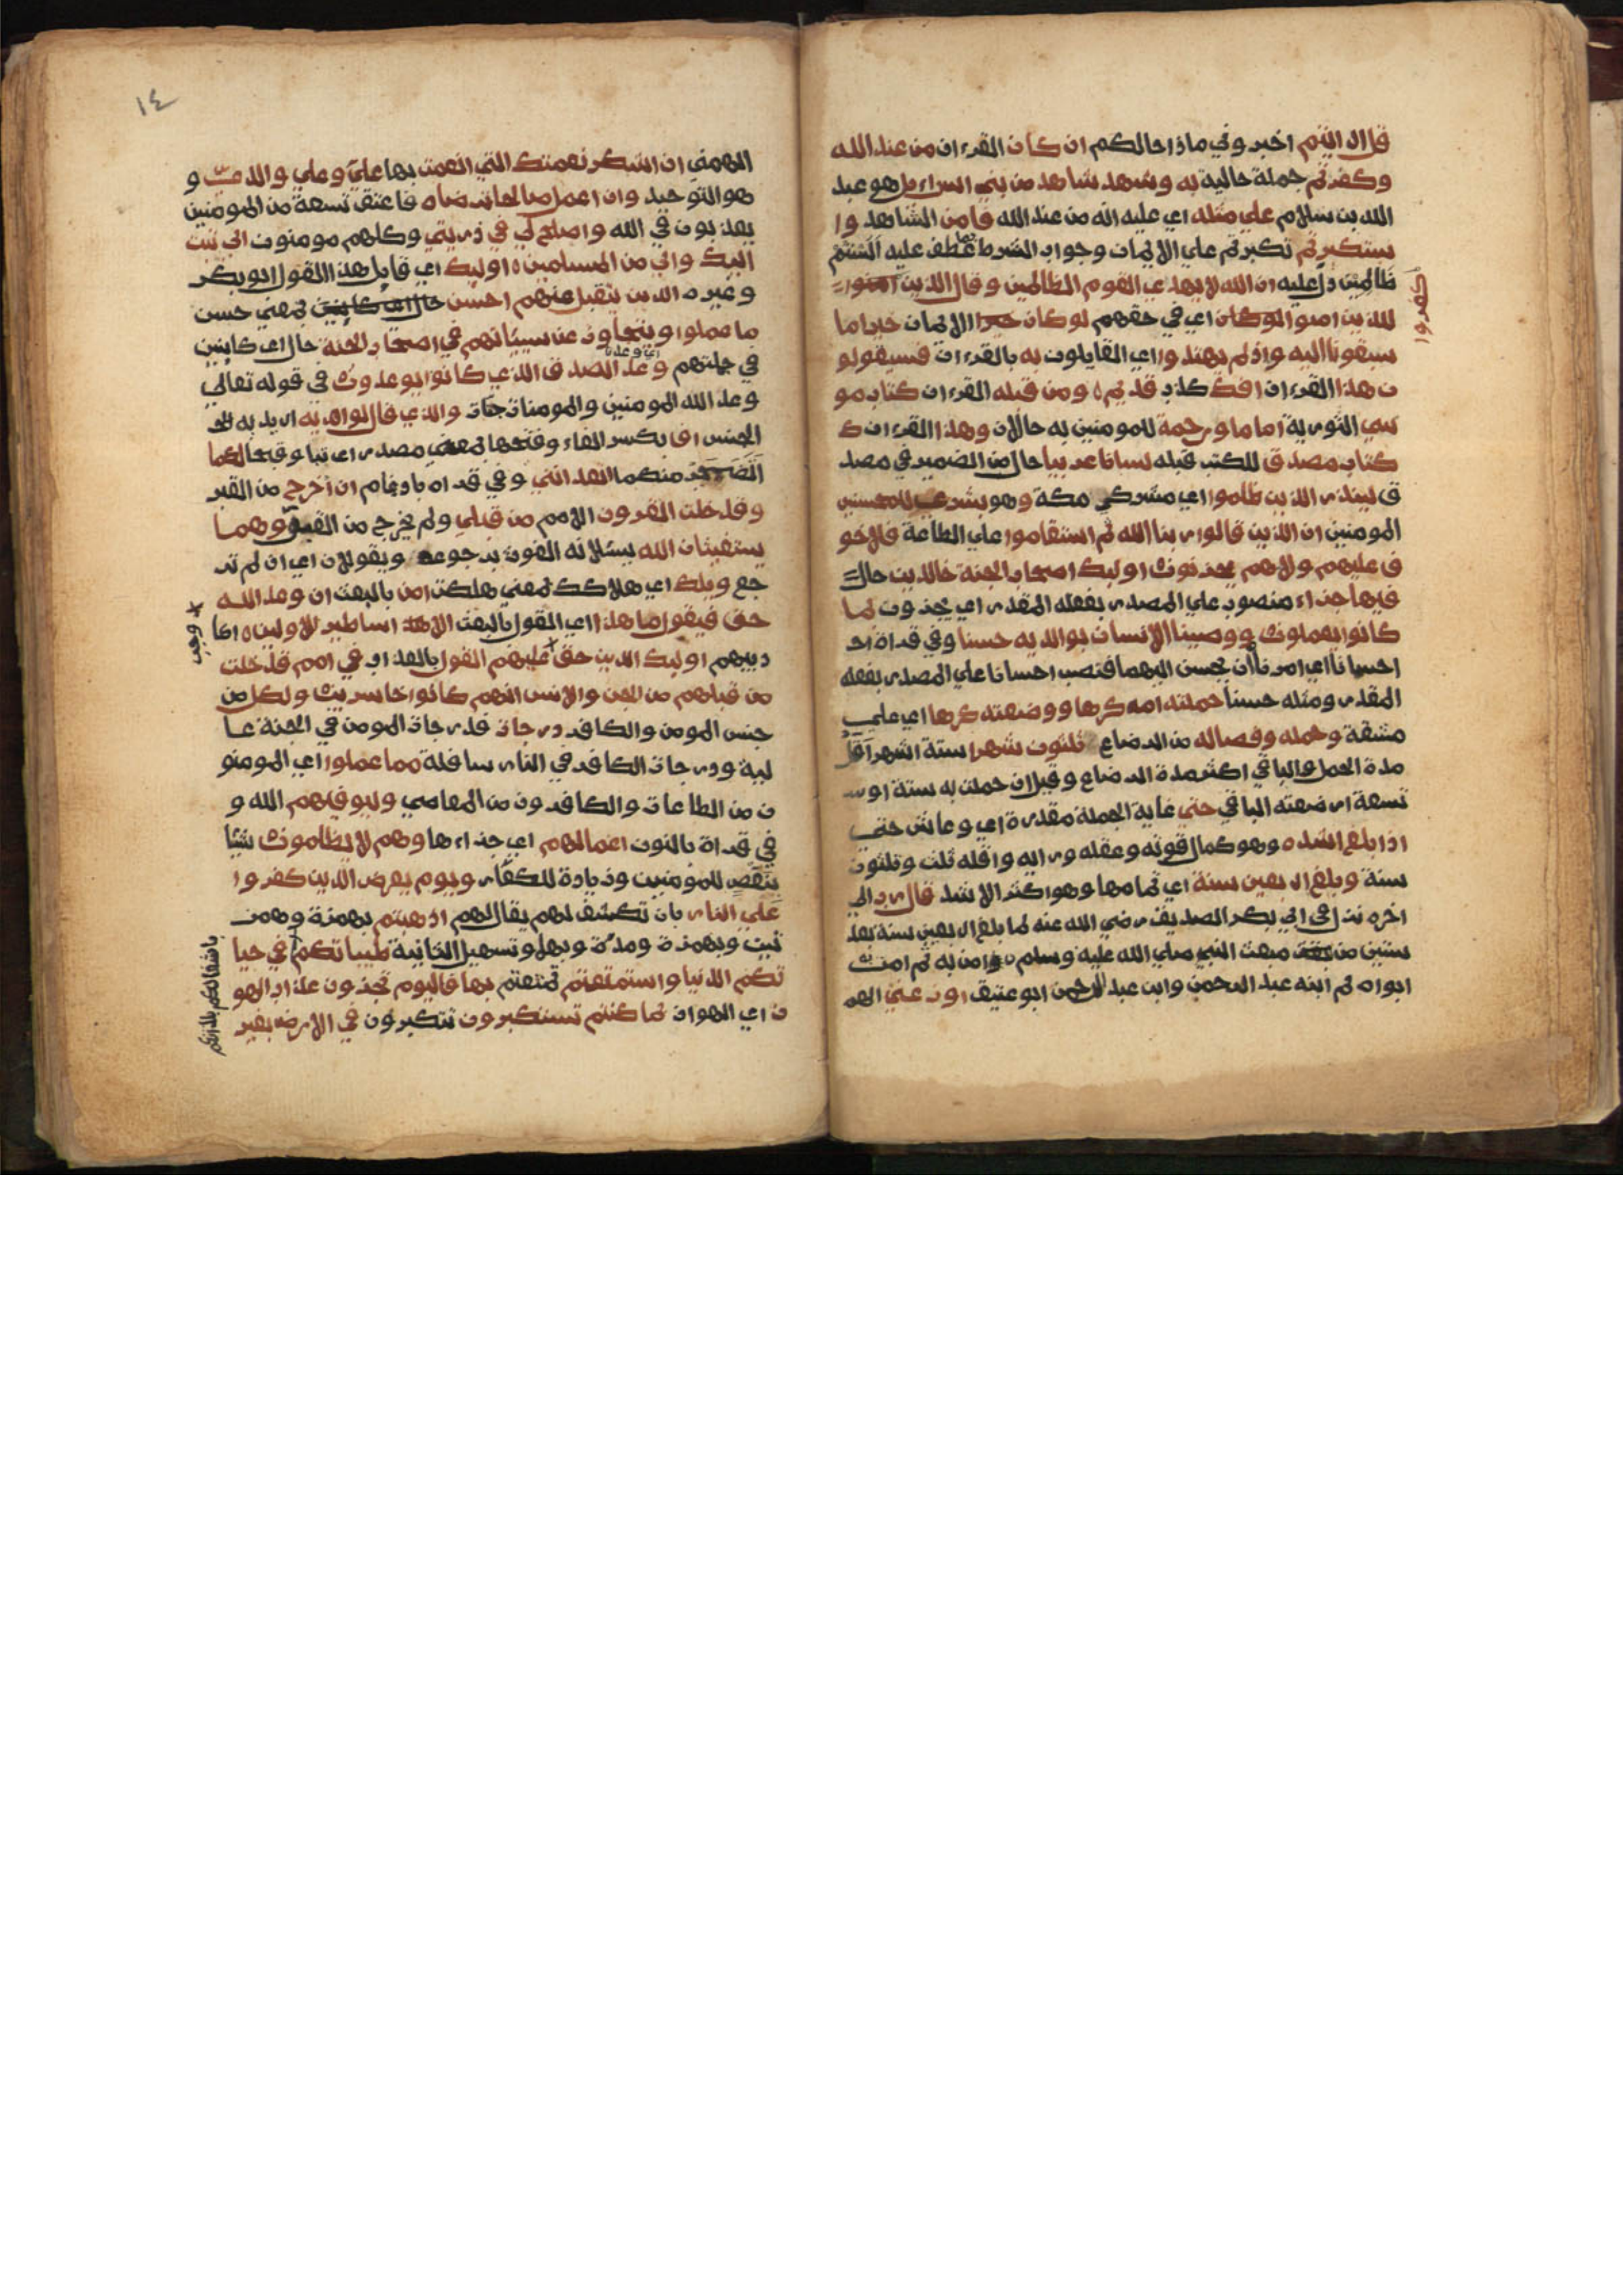 قل ارايتم اخبروني ماذا حالكم ان كان القرءان من عند الله
وكفرتم جملة حالية به وشهد شاهد من بني اسراءيل هو عبد
الله بن سلام علي مثله اي عليه انه من عند الله فامن الشاهد وا
ستكبرتم تكبرتم علي الايمان وجواب الشرط بما عطف عليه الستم
ظالمين دل عليه ان الله لا يهدي القوم الظالمين وقال الذين
كفروا
للذين امنوا لو كان اي في حقهم لو كان الايمان خيرا ما
سبقونا اليه واذ لم يهتدوا اي القايلون به بالقرءان فسيقولو
ن هذا القرءان افك كذب قديم ومن قبله القرءان كتاب مو
سي التورية اماما ورحمة للمومنين به حالان وهذا القرءان ك
كتاب مصدق للكتب قبله لسانا عربيا حال من الضمير في مصد
ق لينذر الذين ظلموا اي مشركي مكة وهو بشري للمحسنين
المومنين ان الذين قالوا ربنا الله ثم استقاموا علي الطاعة فلا خو
ف عليهم ولا هم يحزنون اوليك اصحاب الجنة خالدين حال
فيها جزاء منصوب علي المصدر بفعله المقدر اي يجزون بما
كانوا يعملون ووصينا الانسان بوالديه حسنا وفي قراة ا
احسانا اي امرناه ان يحسن اليهما فنصب احسانا علي المصدر بفعله
المقدر ومثله حسنا حملته امه كرها ووضعته كرها اي علي
مشقة وحمله وفصاله من الرضاع ثلثون شهرا ستة اشهر اقل
مدة الحمل والباقي اكثر مدة الرضاع وقيل ان حملت به ستة او
تسعة ارضعته الباقي حتي غاية لجملة مقدرة اي وعاش حتي
اذا بلغ اشده وهو كمال قوته وعقله ورايه واقله ثلث وثلثون
سنة وبلغ اربعين سنة اي تمامها وهو اكثر الاشد قال رب الي
اخره نزل في ابي بكر الصديق رضي الله عنه لما بلغ اربعين سنة بعد
سنتين من مبعث النبي صلي الله عليه وسلم وامن به ثم امن
ابواه ثم ابنه عبد الرحمن وابن عبد الرحمن ابو عتيق اوزعني الهم
١٤
الهمني ان اشكر نعمتك التي انعمت بها علي وعلي والدي و
هو التوحيد وان اعمل صالحا ترضاه فاعتق تسعة من المومنين
يعذبون في الله واصلح لي في ذريتي وكلهم مومنون اني تبت
اليك واني من المسلمين اوليك اي قايل هذا القول ابو بكر
وغيره الذين يتقبل عنهم احسن حال اي كاينين بمعني حسن
ما عملوا ويتجاوز عن سيياتهم في اصحاب الجنة حال اي كاينين
في جملتهم وعد الصدق الذي كانوا يوعدون في قوله تعالي
وعد الله المومنين والمومنات جنات والذي قال لوالديه اريد به
الجنس اف بكسر الفاء وفتحها بمعني مصدر اي تبا وقبحا لكما
اتضجر منكما اتعدانني وفي قراة بادغام ان اخرج من القبر
وقد خلت القرون الامم من قبلي ولم يخرج من القبور وهما
يستغيثان الله يسئلانه الغوث برجوعه ويقولان اي ان لم تر
جع ويلك اي هلاكك بمعني هلكت امن بالبعث ان وعد الله
حق فيقول ما هذا اي القول بالبعث الا اساطير الاولين اكا
ذيبهم اوليك الذين حق عليهم القول بالعذاب في امم قد خلت
وجب
من قبلهم من الجن والانس انهم كانوا خاسرين ولكل من
جنس المومن والكافر درجات فدرجات المومن في الجنة عا
لية ودرجات الكافر في النار سافلة مما عملوا اي المومنو
ن من الطاعات والكافرون من المعاصي وليوفيهم الله و
في قراة بالنون اعمالهم اي جزاءها وهم لا يظلمون شيا
ينقص للمومنين وزيادة للكفار ويوم يعرض الذين كفروا
علي النار بان تكشف لهم يقال لهم اذهبتم بهمزة وهمز
تين وبهمزة ومدة وبهما وتسهيل الثانية طيباتكم في حيا
باشتغالكم بلذاتكم
تكم الدنيا واستمتعتم تمتعتم بها فاليوم تجزون عذاب الهو
ن اي الهوان بما كنتم تستكبرون تتكبرون في الارض بغير